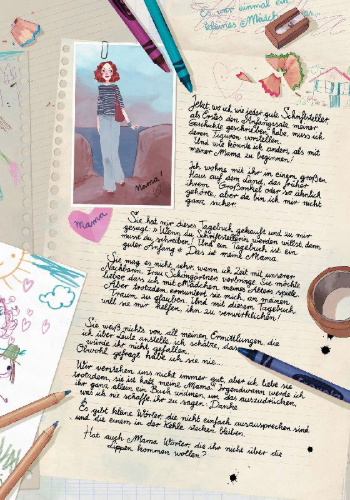 Es war einmal ein
kleines Mädchen...
Jetzt, wo ich wie jeder gute Schriftsteller,
als Erstes den Anfangssatz meiner
Geschichte geschrieben habe, muss ich
deren Figuren vorstellen.
Und wie könnte ich anders, als mit
meiner Mama zu beginnen!
Ich wohne mit ihr in einem großen
Haus auf dem Land, das früher
ihrem Großonkel oder so ähnlich
gehörte, aber da bin ich mir nicht
ganz sicher.
Mama
Mama
Sie hat mir dieses Tagebuch gekauft und zu mir
gesagt: » Wenn du Schriftstellerin werden willst, dann
musst du schreiben! Und ein Tagebuch ist ein
guter Anfang.« Das ist meine Mama.
Sie mag es nicht sehr, wenn ich Zeit mit unserer
Nachbarin, Frau verbringe. Sie möchte
lieber, dass ich mit Mädchen meines Alters spiele.
Aber trotzdem ermutigt sie mich, an meinen
Traum zu glauben. Und mit diesem Tagebuch
will sie mir helfen, ihn zu verwirklichen!
Sie weiß nichts von all meinen Ermittlungen, die
ich über Leute anstelle, ich schätze, das
würde ihr nicht gefallen...
Obwohl, gefragt habe ich sie nie...
Wir verstehen uns nicht immer gut, aber ich liebe sie
trotzdem, sie ist halt meine Mama! Irgendwann werde ich
ihr ganz allein ein Buch widmen, um das auszudrücken,
was ich nie schaffe, ihr zu sagen: Danke.
Es gibt kleine Wörter, die nicht einfach auszusprechen sind
und die einem in der Kehle stecken bleiben.
Hat auch Mama Wörter, die ihr nicht über die
Lippen kommen wollen?